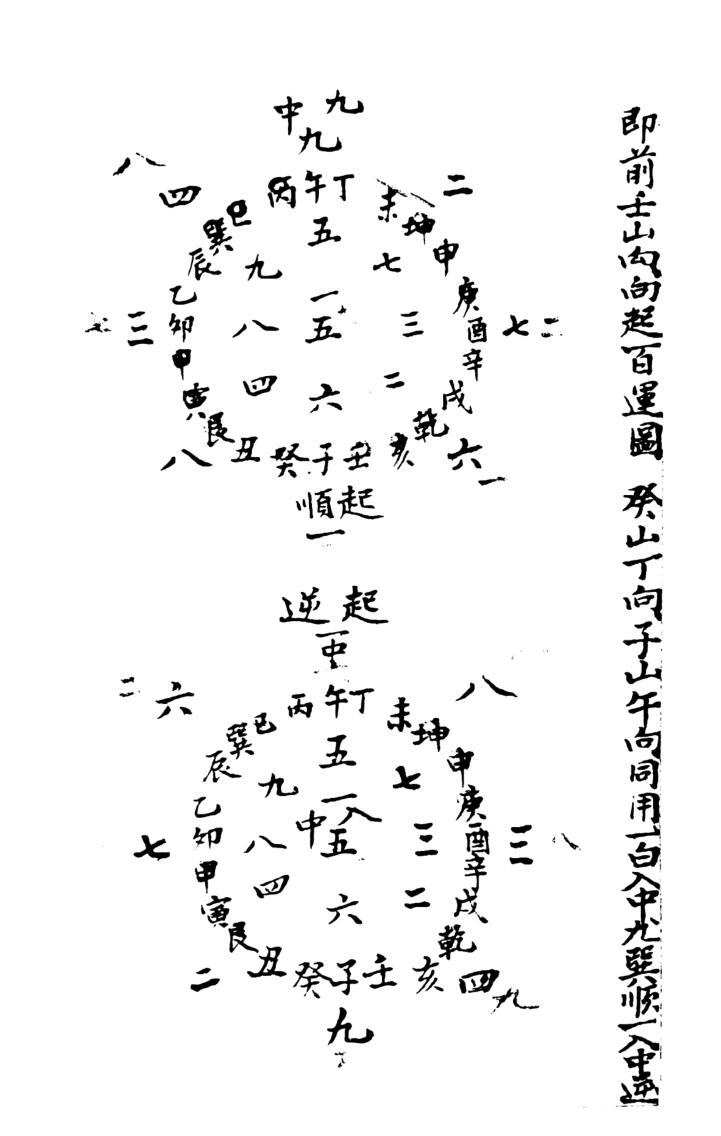 即前壬山丙向起百運圖　癸山丁向子山午向同用一白入中九巽順一入中逆
中九
九
八四　丙午丁　二
巳　五　未
巽　坤
辰　九　七　申
乙　一　庚
三　卯　八　五　三　酉　七二
甲　辛
寅　四　六　二　戌
艮　乾
八　丑　癸子壬　亥　六一
順起
一
逆起
一中
二六　丙午丁　八
巳　未
巽　五　坤
辰　九　七　申
乙　一入　庚
七　卯　八　中五　三　酉　三八
甲　辛
寅　四　六　二　戌
艮　乾
二　丑　癸子壬　亥　四九
九